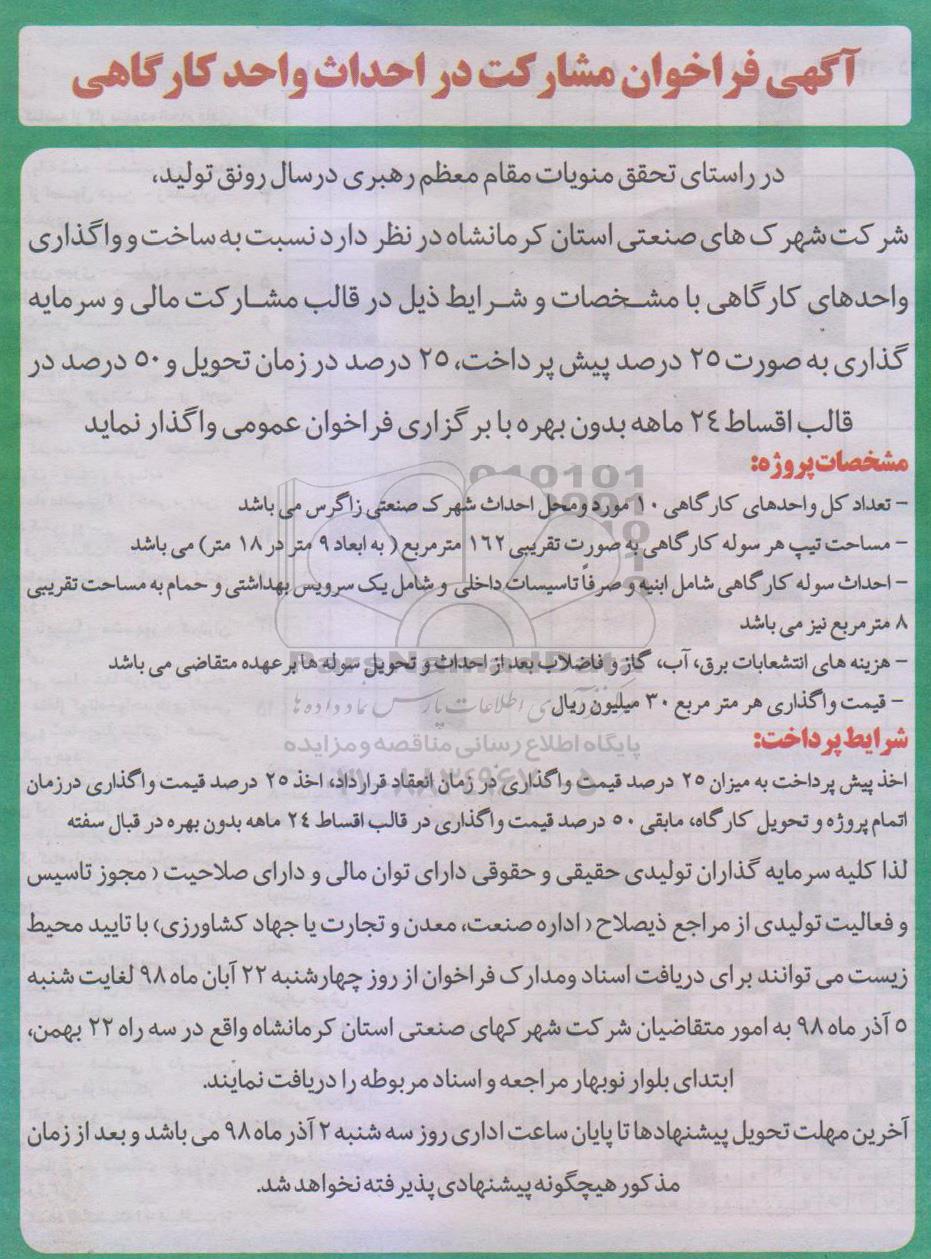 آگهی فراخوان مشارکت در احداث واحد کارگاهی
در راستای تحقق منویات مقام معظم رهبری در سال رونق تولید،
شرکت شهرک های صنعتی استان کرمانشاه در نظر دارد نسبت به ساخت و واگذاری
واحدهای کارگاهی با مشخصات و شرایط ذیل در قالب مشارکت مالی و سرمایه
گذاری به صورت ۲۵ درصد پیش پرداخت، ۲۵ درصد در زمان تحویل و ۵۰ درصد در
قالب اقساط ۲٤ ماهه بدون بهره با برگزاری فراخوان عمومی واگذار نماید
مشخصات پروژه:
- تعداد کل واحدهای کارگاهی ۱۰ مورد ومحل احداث شهرک صنعتی زاگرس می باشد
- مساحت تیپ هر سوله کارگاهی به صورت تقریبی ۱٦۲ مترمربع ( به ابعاد ۹ متر در ۱۸ متر) می باشد
- احداث سوله کارگاهی شامل ابنیه و صرفاً تاسیسات داخلی و شامل یک سرویس بهداشتی و حمام به مساحت تقریبی
۸ مترمربع نیز می باشد
- هزینه های انتشعابات برق، آب، گاز و فاضلاب بعد از احداث و تحویل سوله ها بر عهده متقاضی می باشد
- قیمت واگذاری هر متر مربع ۳۰ میلیون ریال
ParsNamadData
پایگاه اطلاع رسانی مناقصه و مزایده
شرایط پرداخت:
اخذ پیش پرداخت به میزان ۲۵ درصد قیمت واگذاری در زمان انعقاد قرارداد، اخذ ۲۵ درصد قیمت واگذاری درزمان
اتمام پروژه و تحویل کارگاه، مابقی ۵۰ درصد قیمت واگذاری در قالب اقساط ۲٤ ماهه بدون بهره در قبال سفته
لذا کلیه سرمایه گذاران تولیدی حقیقی و حقوقی دارای توان مالی و دارای صلاحیت ( مجوز تاسیس
و فعالیت تولیدی از مراجع ذیصلاح (اداره صنعت، معدن و تجارت یا جهاد کشاورزی) با تایید محیط
زیست می توانند برای دریافت اسناد ومدارک فراخوان از روز چهارشنبه ۲۲ آبان ماه ۹۸ لغایت شنبه
۵ آذر ماه ۹۸ به امور متقاضیان شرکت شهرکهای صنعتی استان کرمانشاه واقع در سه راه ۲۲ بهمن،
ابتدای بلوار نوبهار مراجعه و اسناد مربوطه را دریافت نمایند.
آخرین مهلت تحویل پیشنهادها تا پایان ساعت اداری روز سه شنبه ۲ آذر ماه ۹۸ می باشد و بعد از زمان
مذکور هیچگونه پیشنهادی پذیرفته نخواهد شد.